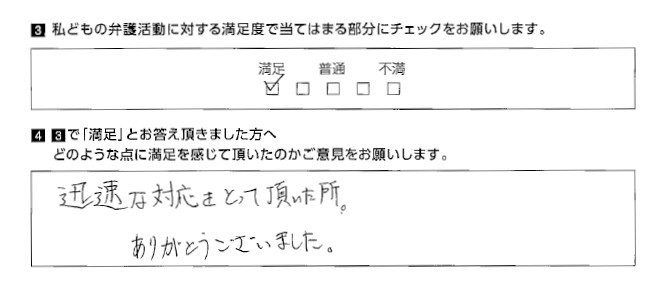 3 私どもの弁護活動に対する満足度で当てはまる部分にチェックをお願いします。
満足 普通 不満
☑ □ □ □ □
4 3で「満足」とお答え頂きました方へ
どのような点に満足を感じて頂いたのかご意見をお願いします。
迅速な対応をとって頂いた所。
ありがとうございました。